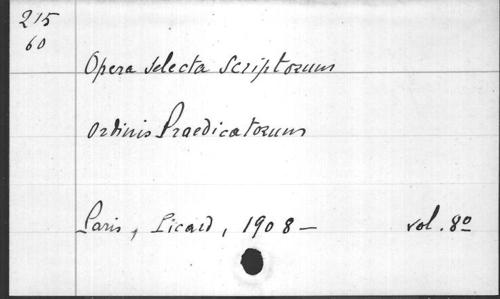 215
60
Opera selecta Scriptorum
Ordinis Praedicatorum
Paris, Picard, 1908 — vol. 8º